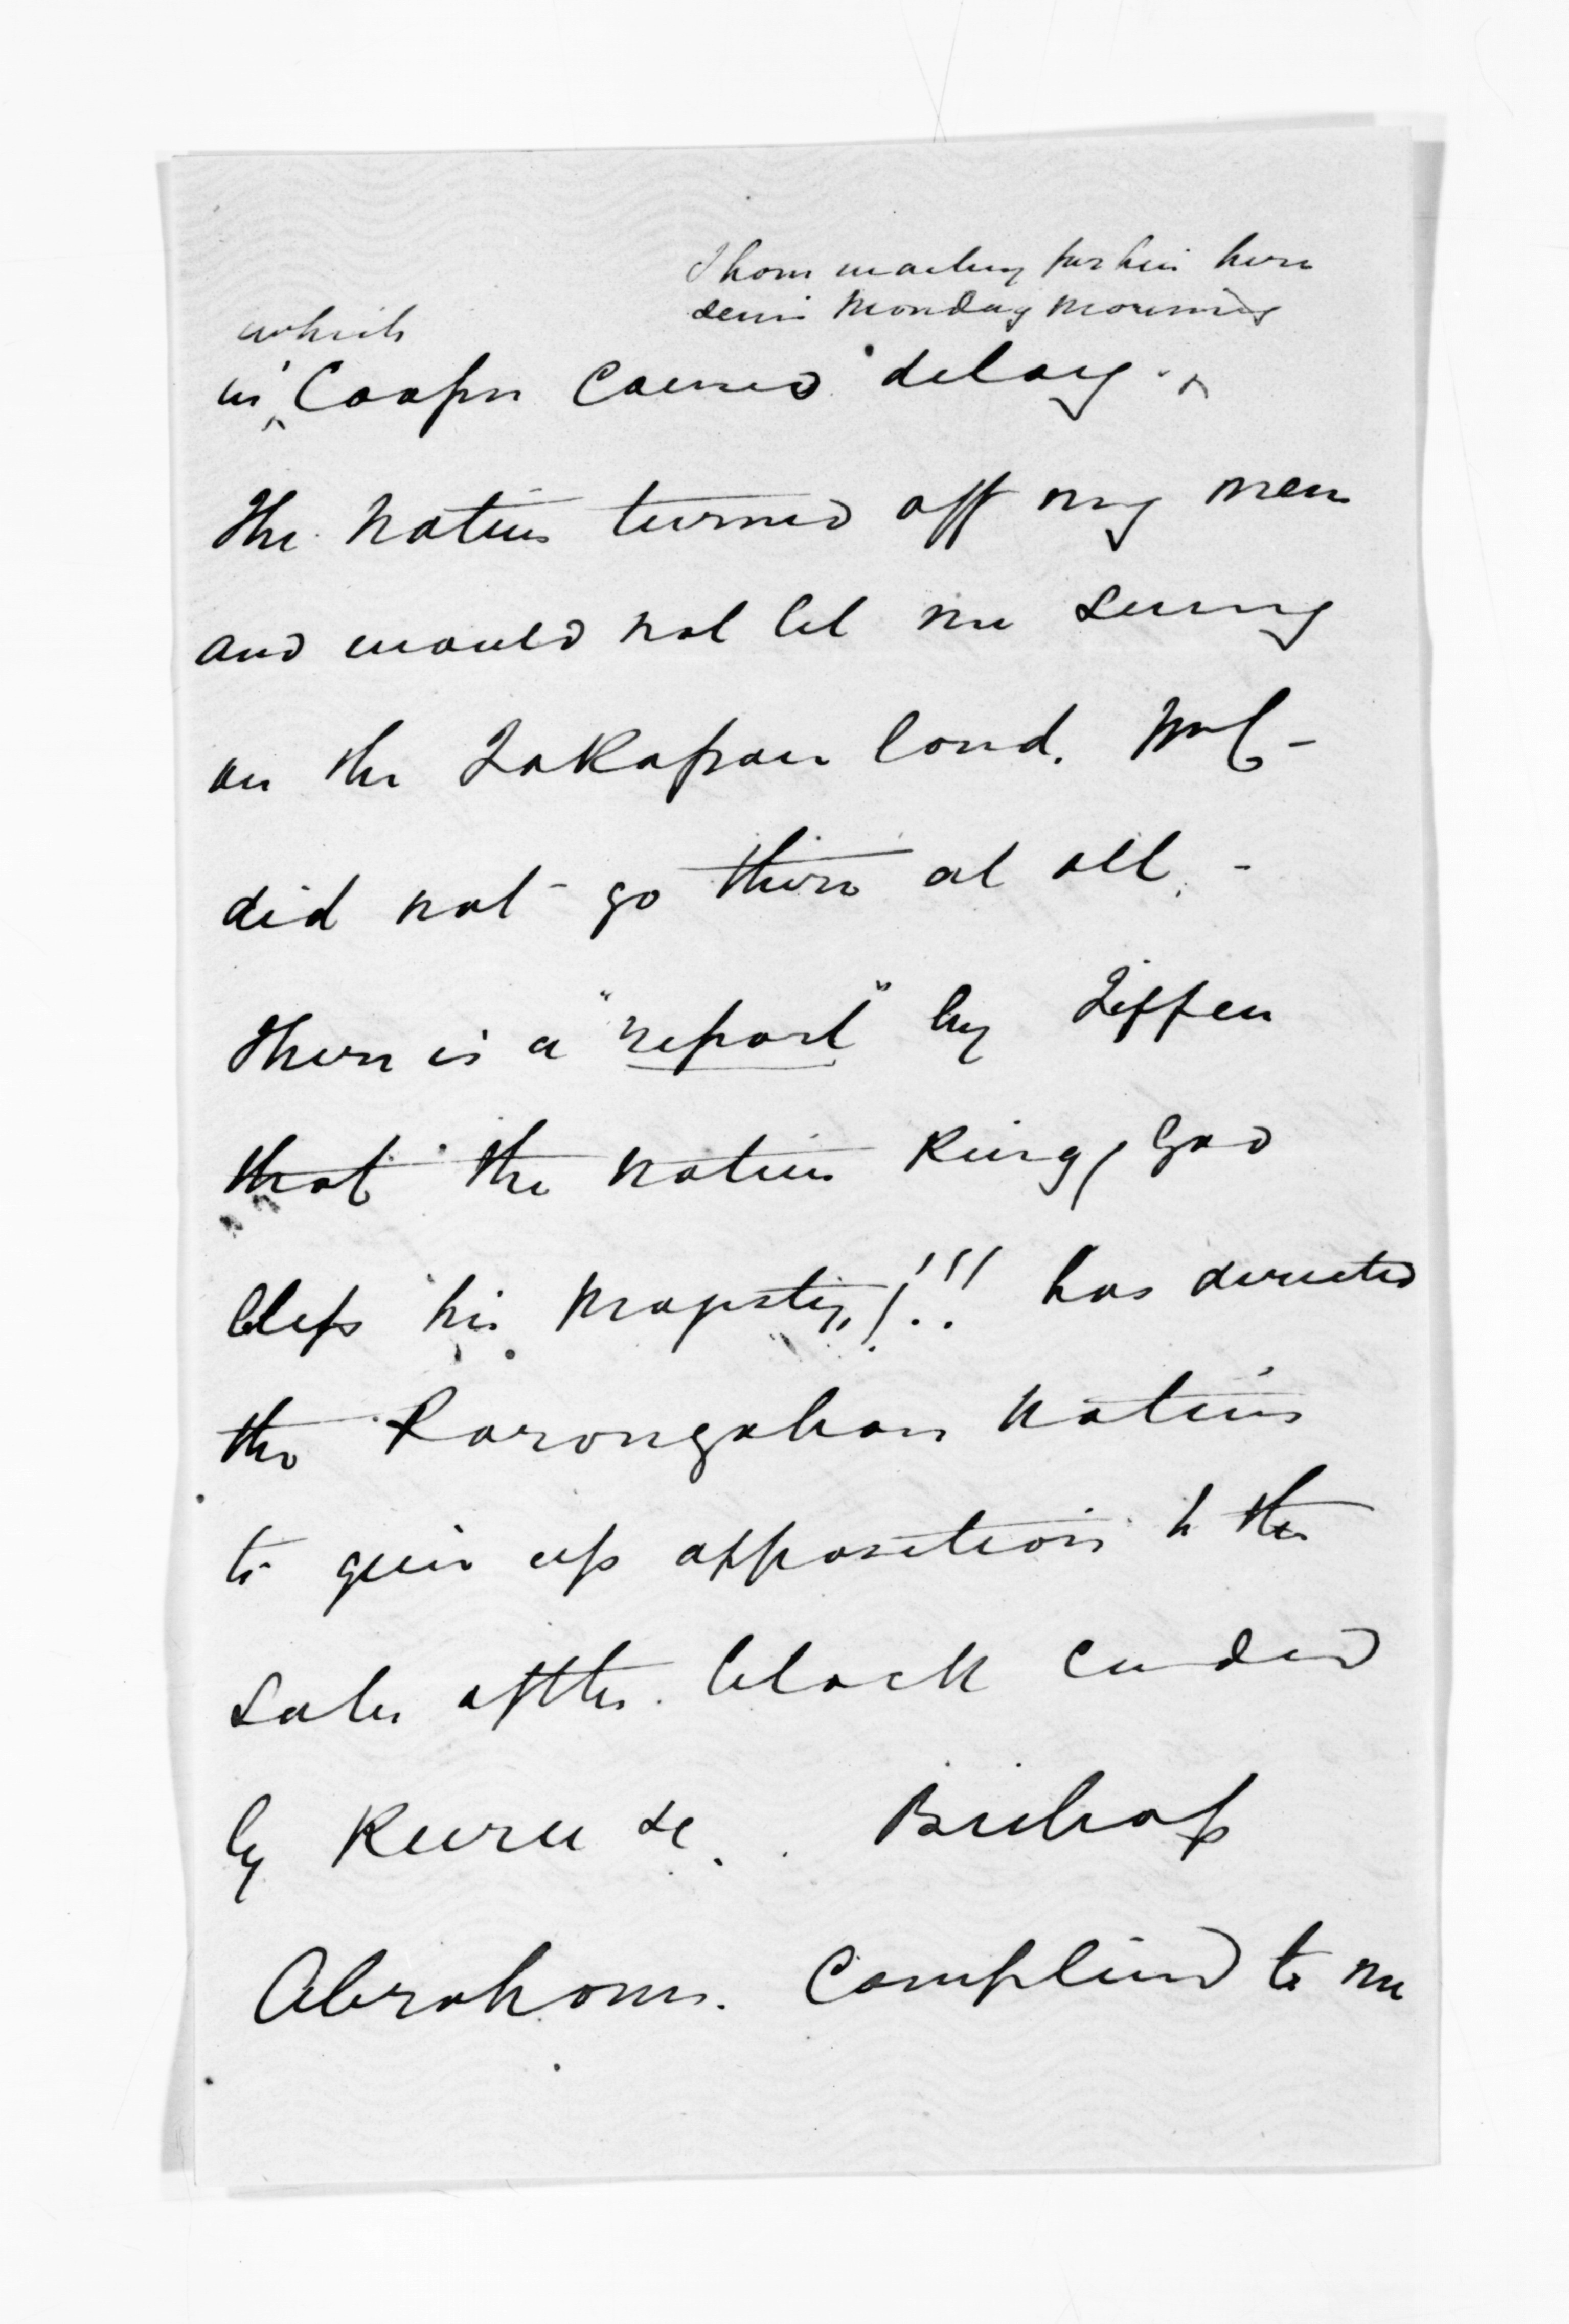 I have waiting for him here
since Monday morning
which
in Cooper caused delay.
The Natives turned off my men
and would not let me survey
on the Takapau land. McL
did not go there at all. -
There is a "report" by Tiffen
that the native King, God
bless his Majesty, !!! has directed
the Rarongahau Natives
to give up opposition to the
sale of the block ceded
by Kuru &c. Bishop
Abraham. Complained to me